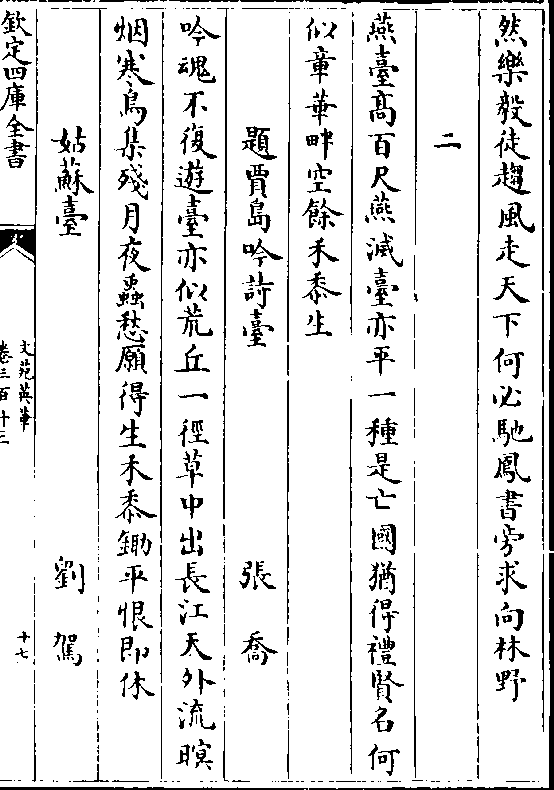 然樂毅徒趨風走天下何必馳鳳書旁求向林野
二
燕臺高百尺燕滅臺亦平一種是亡國猶得禮賢名何
似章華畔空餘禾黍生
題賈島吟詩臺 張喬
吟魂不復遊臺亦似荒丘一徑草中出長江天外流暝
烟寒鳥集殘月夜蟲愁願得生禾黍鋤平恨即休
姑蘇臺 劉駕
欽定四庫全書
文苑英華
卷三百十三
十七